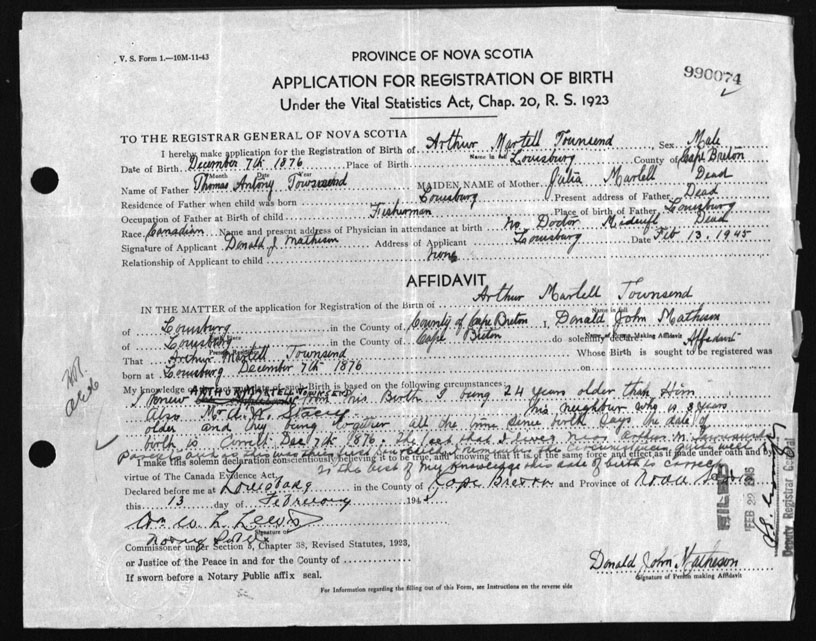 V. S. Form 1.—10M-11-43
PROVINCE OF NOVA SCOTIA
990074
APPLICATION FOR REGISTRATION OF BIRTH
Under the Vital Statistics Act, Chap. 20, R. S. 1923
TO THE REGISTRAR GENERAL OF NOVA SCOTIA
I hereby make application for the Registration of Birth of Arthur Martell Townsend Sex Male
Name in full
Date of Birth December 7th 1876 Place of Birth Louisburg County of Cape Breton
Month Date Year
Name of Father Thomas Antony Townsend MAIDEN NAME of Mother Julia Martell Dead
Residence of Father when child was born Louisburg Present address of Father Dead
Occupation of Father at Birth of child Fisherman Place of birth of Father Louisburg
Race Canadian Name and present address of Physician in attendance at birth No Doctor Midwife Dead
Signature of Applicant Donald J. Matheson Address of Applicant Louisburg Date Feb 13, 1945
Relationship of Applicant to child None
AFFIDAVIT
IN THE MATTER of the application for Registration of the Birth of Arthur Martell Townsend
Name in full
of Louisburg in the County of County of Cape Breton I, Donald John Matheson
of Louisburg in the County of Cape Breton do solemnly declare Affidavit
Name of Person Making Affidavit
That Arthur Martell Townsend Whose Birth is sought to be registered was
born at Louisburg December 7th 1876 on
My knowledge of such Birth is based on the following circumstances
I knew ARTHUR MARTELL TOWNSEND from this Birth I being 24 years older than Him
Also Mr. A. W. Stacey his neighbour who is 3 years
older and they being together all the time since birth says the date of
birth is Correct Dec 7th 1876. The fact that I lived near
I make this solemn declaration conscientiously believing it to be true, and knowing that it is of the same force and effect as if made under oath and by
to the best of my knowledge this date of birth is correct
virtue of The Canada Evidence Act.
Declared before me at Louisburg in the County of Cape Breton and Province of Nova Scotia
this 13 day of February 1945
Wm W. L. Lewis
Signature of
Notary Public
Commissioner under Section 5, Chapter 38, Revised Statutes, 1923,
or Justice of the Peace in and for the County of
If sworn before a Notary Public affix seal.
Donald John Matheson
Signature of Person making Affidavit
For Information regarding the filling out of this Form, see Instructions on the reverse side
FILED
FEB 22 1945
Deputy Registrar General